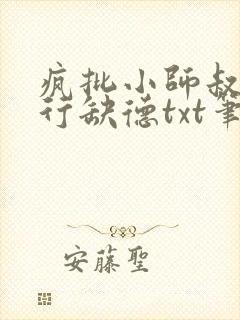 疯批小師叔
行缺德txt筆
安藤聖